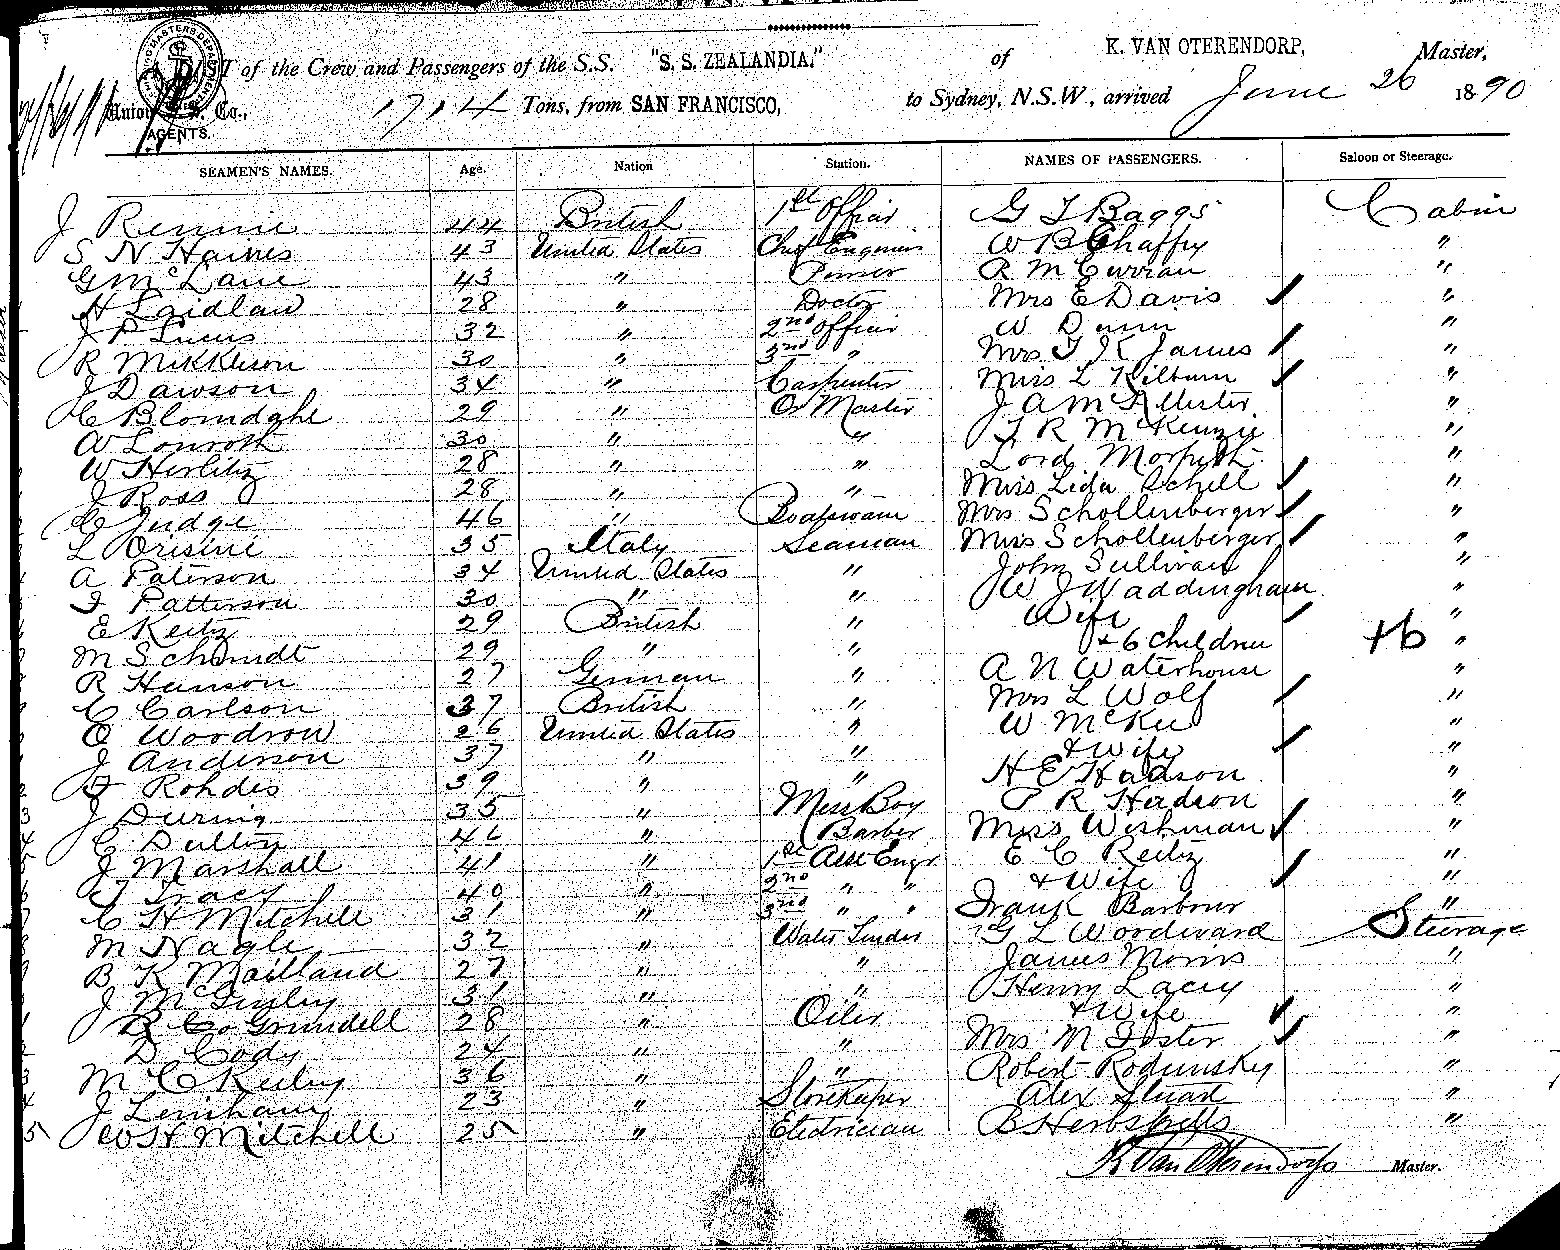 LIST of the Crew and Passengers of the S.S. "S. S. ZEALANDIA," of K. VAN OTERENDORP, Master,
Union S.S. Co., AGENTS. 1714 Tons, from SAN FRANCISCO, to Sydney, N.S.W., arrived June 26 1890
SEAMEN'S NAMES. Age. Nation Station. NAMES OF PASSENGERS. Saloon or Steerage.
J Rennie 44 British 1st Officer G T Baggs Cabin
S N Haines 43 United States Chief Engineer W B Chaffey "
G McLane 43 " Purser R M Curran "
H Laidlaw 28 " Doctor Mrs E Davis "
J P Lucus 32 " 2nd officer W Dunn "
R Mikkleson 30 " 3rd " Mrs T K James "
J Dawson 34 " Carpenter Miss L Kilburn "
C Blomdahl 29 " Qr Master J A McAllister "
W Lonroth 30 " " F R McKenzie "
W Herlitz 28 " " Lord Morpeth "
J Ross 28 " " Miss Lida Schell "
C Judge 46 " Boatswain Mrs Schollenberger "
L Orisine 35 Italy Seaman Miss Schollenberger "
A Paterson 34 United States " John Sullivan "
F Patterson 30 " " W J Waddingham "
E Keitz 29 British " Wife "
M Schmidt 29 " " + 6 children +6 "
R Hanson 27 German " A N Waterhouse "
C Carlson 37 British " Mrs L Wolf "
O Woodrow 26 United States " W McKee "
J Anderson 37 " " & Wife "
F Rohdes 39 " " H E Hadson "
J During 35 " Mess Boy P R Hudson "
C Dutton 46 " Barber Miss Wishman "
J Marshall 41 " 1st Asst Engr E C Reitz "
T Tracy 40 " 2nd " " & Wife "
C H Mitchell 31 " 3rd " " Frank Barbour "
M Nagle 32 " Water Tender G L Woodward Steerage
B K Maitland 27 " " James Morris "
J McGinley 31 " " Henry Lacey "
R Co Grundell 28 " Oiler & Wife "
D Cody 24 " " Mrs M Foster "
M C Reiley 36 " " Robert Rodunsky "
J Lenihan 23 " Storekeeper Alex Stuart "
W H Mitchell 25 " Electrician B Herbspitts "
K Van Oterendorp Master.